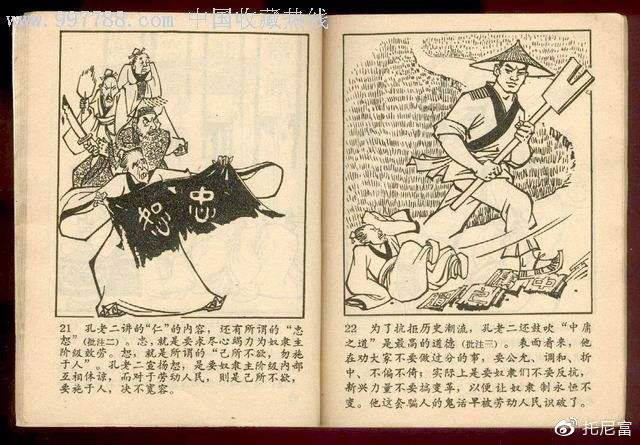 www.997788.com 中国收藏热线
恕 忠
21 孔老二讲的“仁”的内容，还有所谓的“忠
恕”(批注二)。忠，就是要求尽心竭力为奴隶主
阶级效劳。恕，就是所谓的“己所不欲，勿施
于人”。孔老二宣扬恕，是要奴隶主阶级内部
互相体谅，而对于劳动人民，则是己所不欲，
要施于人，决不宽容。
中
22 为了抗拒历史潮流，孔老二还鼓吹“中庸
之道”是最高的道德(批注三)。表面看来，他
在劝大家不要做过分的事，要公允、调和、折
中、不偏不倚；实际上是要奴隶们不要反抗，
新兴力量不要搞变革，以便让奴隶制永恒不
变。他这套骗人的鬼话早被劳动人民识破了。
@托尼富